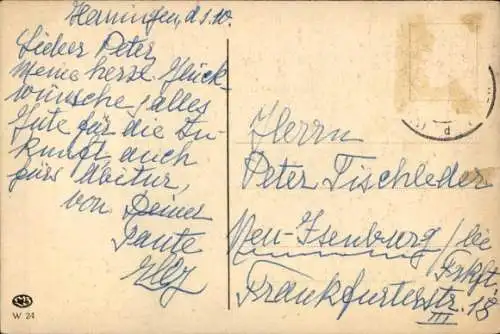 Henningen, d. 1.10.
Lieber Peter
Meine herzl. Glück-
wünsche, alles
Gute für die Zu-
kunft, auch
fürs Abitur,
von Deiner
Tante
Elly
Herrn
Peter Tischleder
Neu-Isenburg / bei
Frkft.
Frankfurterstr. 18
III
W 24